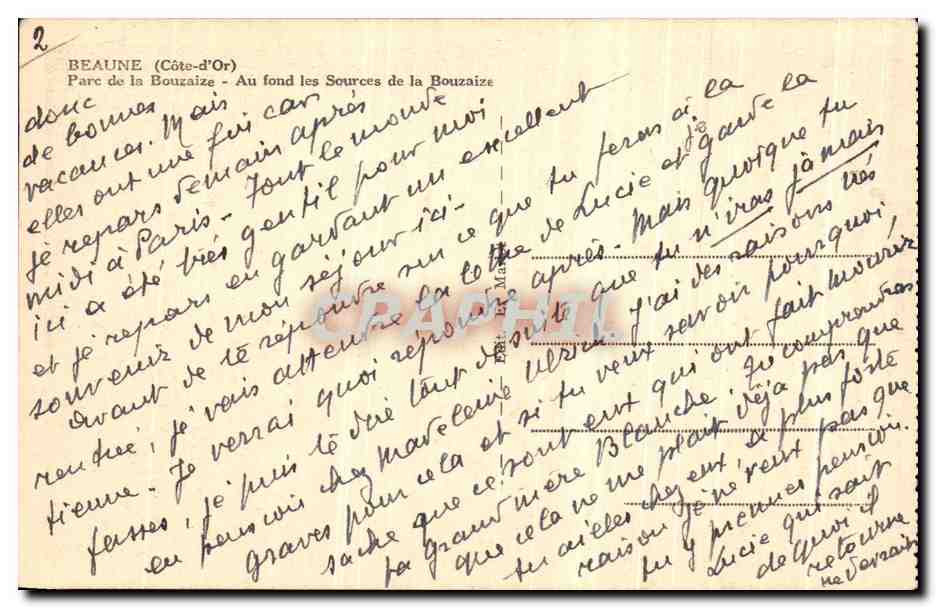 2
BEAUNE (Côte-d'Or)
Parc de la Bouzaize - Au fond les Sources de la Bouzaize
donc
de bonnes
vacances. Mais
elles ont une fin car
je repars demain après
midi à Paris - Tout le monde
ici a été très gentil pour moi
et je repars en gardant un excellent
souvenir de mon séjour ici -
avant de te répondre sur ce que tu feras à la
rentrée, je vais attendre la lettre de Lucie et je garde la
tienne - Je verrai quoi répondre après - Mais quoique tu
fasses, je puis te dire tout de suite que tu n'iras jamais
en pension chez Madeleine J'ai des raisons très
graves pour cela et si tu veux savoir pourquoi,
sache que ce sont eux qui ont fait mourir
ta grand'mère Blanche. Tu comprendras
que cela ne me plait déjà pas que
tu ailles chez eux, à plus forte
raison je ne veux pas que
tu y prennes pension.
Lucie qui sait
de quoi il
retourne
ne
Edit. Mar
CPARPHIL